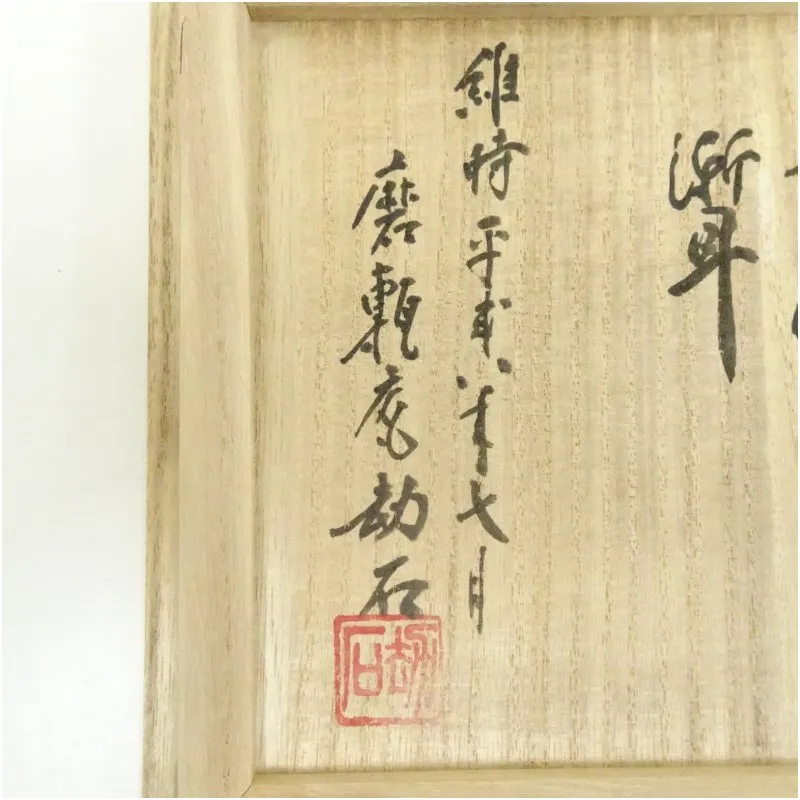 維時平成八年七月
磨甎庵劫石
劫石